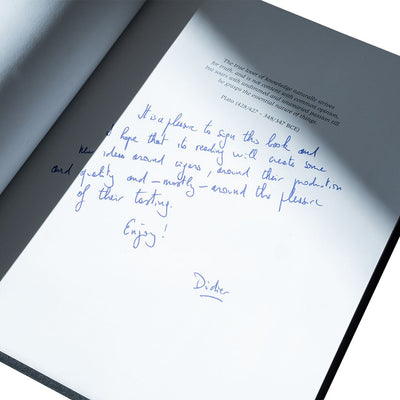 The true lover of knowledge naturally strives
for truth, and is not content with common opinion,
but soars with undimmed and unwearied passion till
he grasps the essential nature of things.
Plato (428/427 - 348/347 BCE)
It is a pleasure to sign this book and
I hope that its reading will create some
new ideas around cigars, around their production
and quality and - mostly - around the pleasure
of their tasting.
Enjoy!
Didier